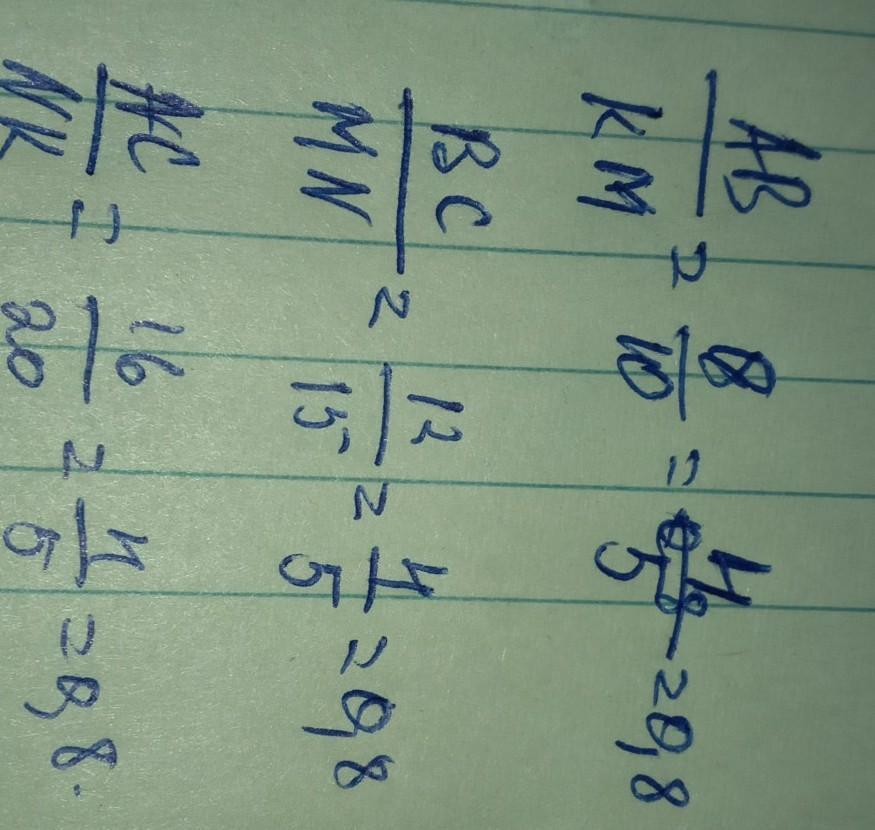 AB/KM = 8/10 = 4/5 = 0,8
BC/MN = 12/15 = 4/5 = 0,8
AC/NK = 16/20 = 4/5 = 0,8.